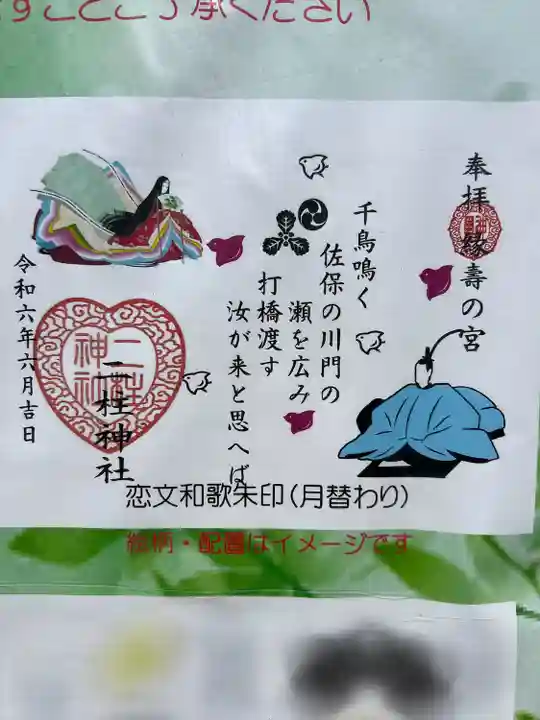 すことご了承ください
奉拝 縁壽の宮
千鳥鳴く
佐保の川門の
瀬を広み
打橋渡す
汝が来と思へば
二柱神社
二柱
神社
令和六年六月吉日
恋文和歌朱印(月替わり)
絵柄・配置はイメージです